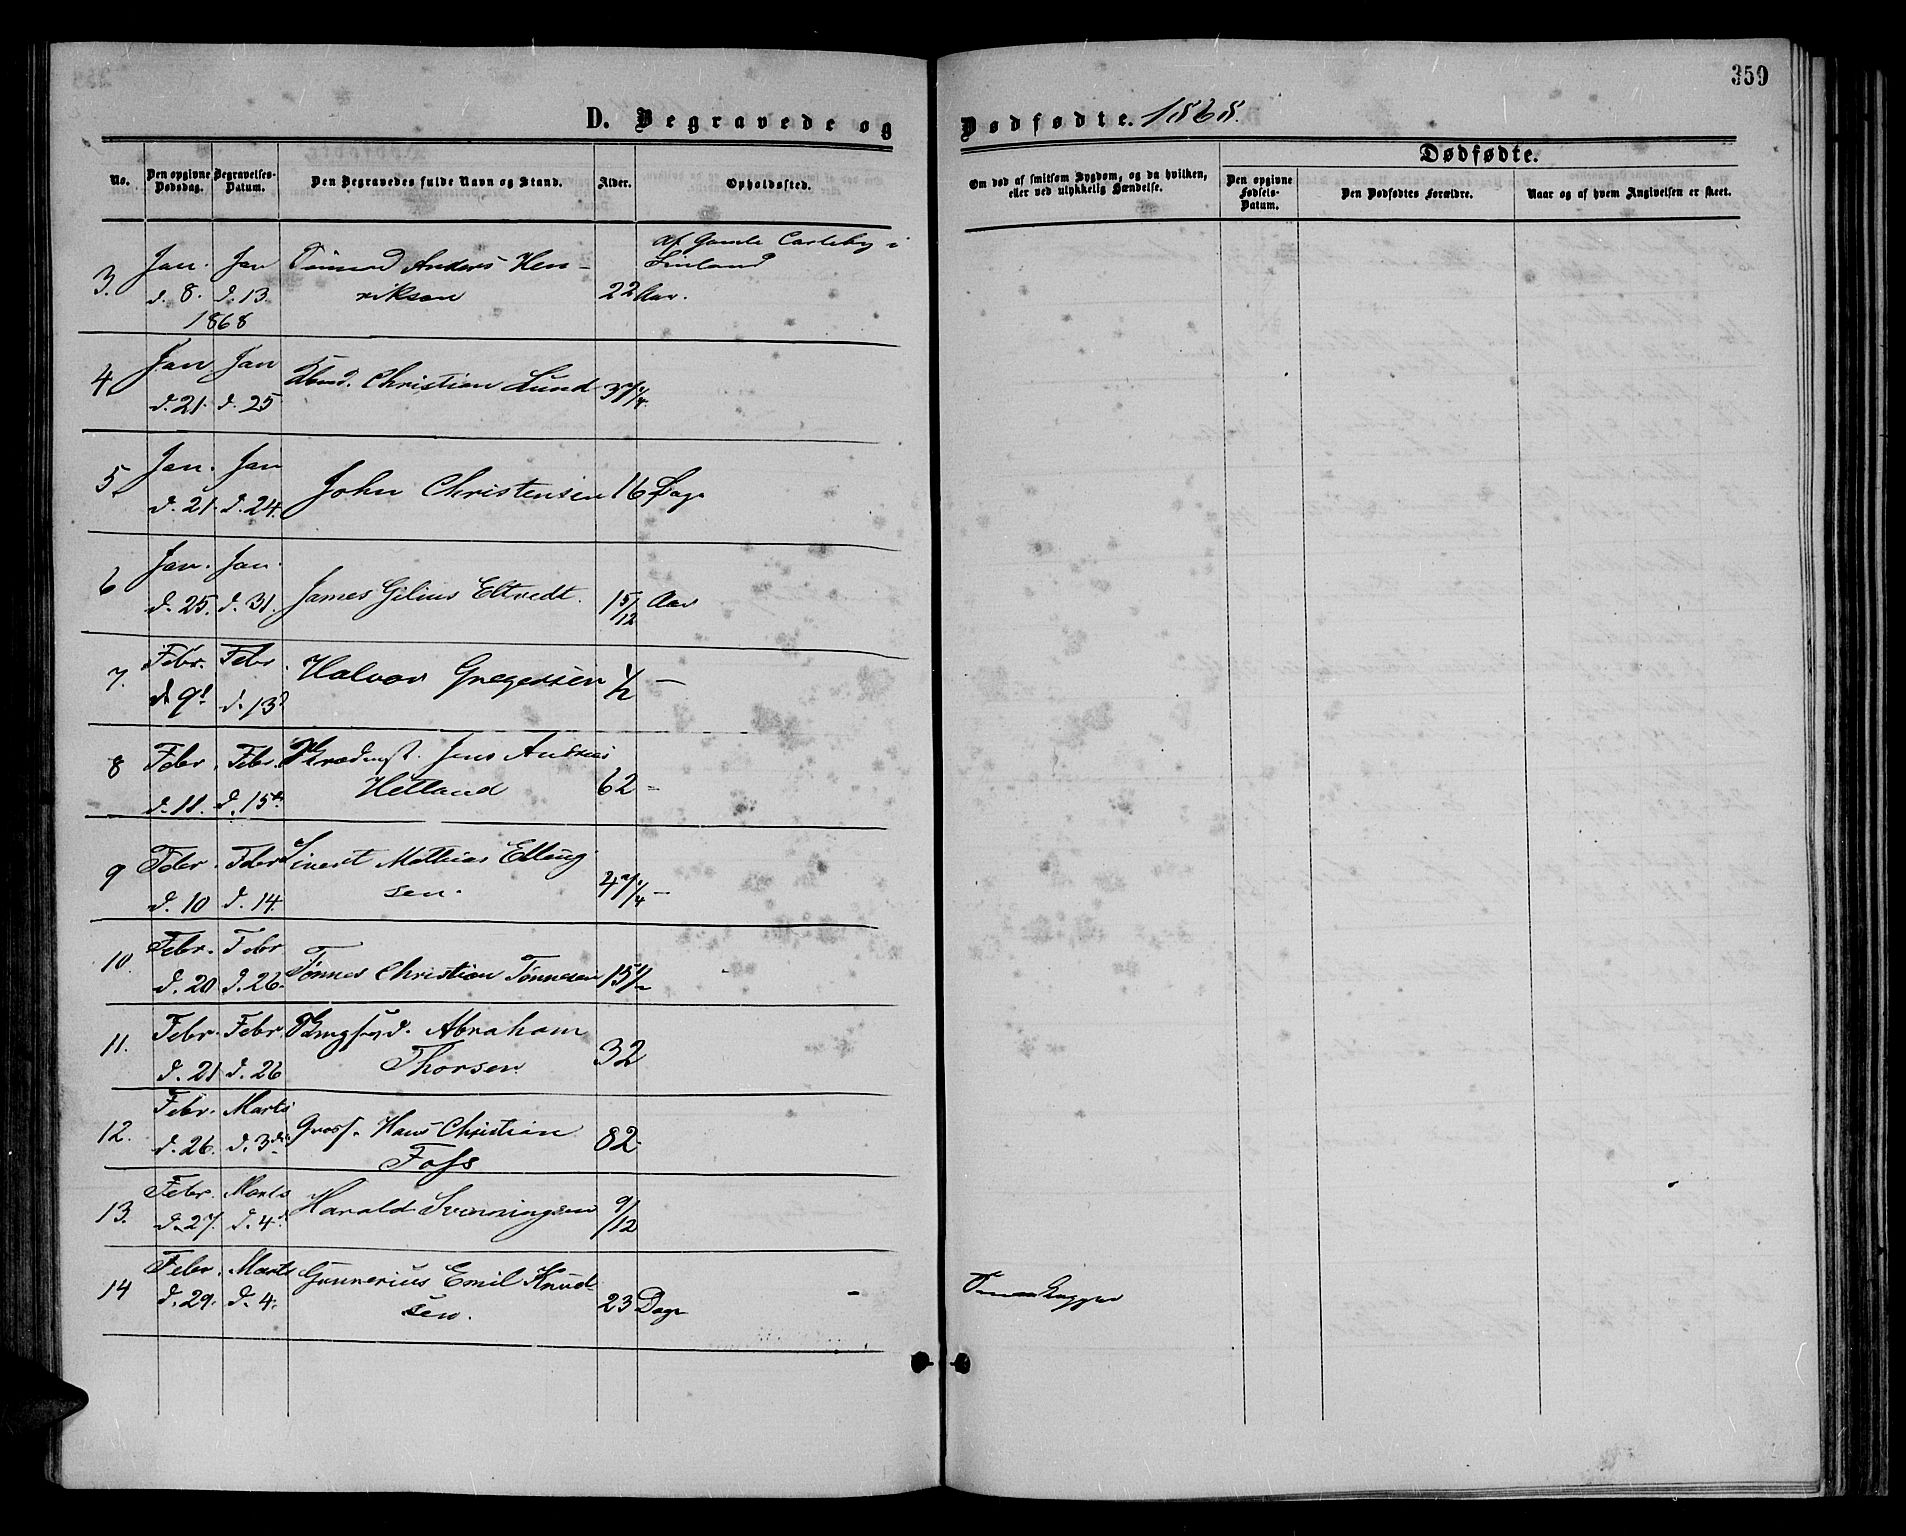 359
D. Begravede og Dødfødte. 1868.
No.
Den opgivne Dødsdag.
Begravelses-Datum.
Den Begravedes fulde Navn og Stand.
Alder.
Opholdssted.
Om død af smitsom Sygdom, og da hvilken,
eller ved ulykkelig Hændelse.
Dødfødte.
Den opgivne Fødsels-Datum.
Den Dødfødtes Forældre.
Naar og af hvem Angivelsen er skeet.
af Gamle Carleby i
3. Jan. Jan Anders Hen-
d. 8. d. 13. riksen 22 Aar.
1868
4. Jan Jan Christian Lund
d. 21. d. 25
5. Jan. Jan John Christensen 16 Dage
d. 21. d. 24.
6 Jan. Jan. James Gilius Eltvedt. 1 5/12 Aar
d. 25. d. 31.
7. Febr. Febr. Halvor Gregersen 1/2 —
d. 9d d. 13d
8 Febr. Febr. Jens Andreas
d. 11. d. 15de Hetland 62 -
9 Febr. Febr Sivert Mathias Elling
d. 10 d. 14. sen. 4 1/4 —
10. Febr. Febr Tønnes Christian Tønnesen 15 1/2
d. 20 d. 26.
11. Febr. Febr. Abraham
d. 21 d. 26 Thorsen 32
12. Febr. Marts Hans Christian
d. 26. d. 3die Foss 82
13. Febr. Marts Harald Svenningsen 9/12
d. 27. d. 4d
14 Febr. Marts Gunnerius Emil Knud-
d. 29. d. 4. sen. 23 Dage -